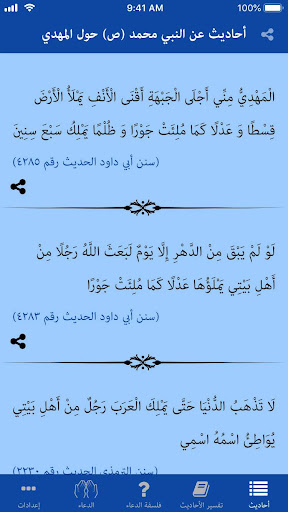 9:41 AM 100%
أحاديث عن النبي محمد (ص) حول المهدي
الْمَهْدِيُّ مِنِّي أَجْلَى الْجَبْهَةِ أَقْنَى الْأَنْفِ يَمْلَأُ الْأَرْضَ
قِسْطًا وَ عَدْلًا كَمَا مُلِئَتْ جَوْرًا وَ ظُلْمًا يَمْلِكُ سَبْعَ سِنِينَ
(سنن أبي داود الحديث رقم ٤٢٨٥)
لَوْ لَمْ يَبْقَ مِنَ الدَّهْرِ إِلَّا يَوْمٌ لَبَعَثَ اللَّهُ رَجُلًا مِنْ
أَهْلِ بَيْتِي يَمْلَؤُهَا عَدْلًا كَمَا مُلِئَتْ جَوْرًا
(سنن أبي داود الحديث رقم ٤٢٨٣)
لَا تَذْهَبُ الدُّنْيَا حَتَّى يَمْلِكَ الْعَرَبَ رَجُلٌ مِنْ أَهْلِ بَيْتِي
يُوَاطِئُ اسْمُهُ اسْمِي
(سنن الترمذي الحديث رقم ٢٢٣٠)
أحاديث تفسير الأحاديث فلسفة الدعاء الدعاء إعدادات